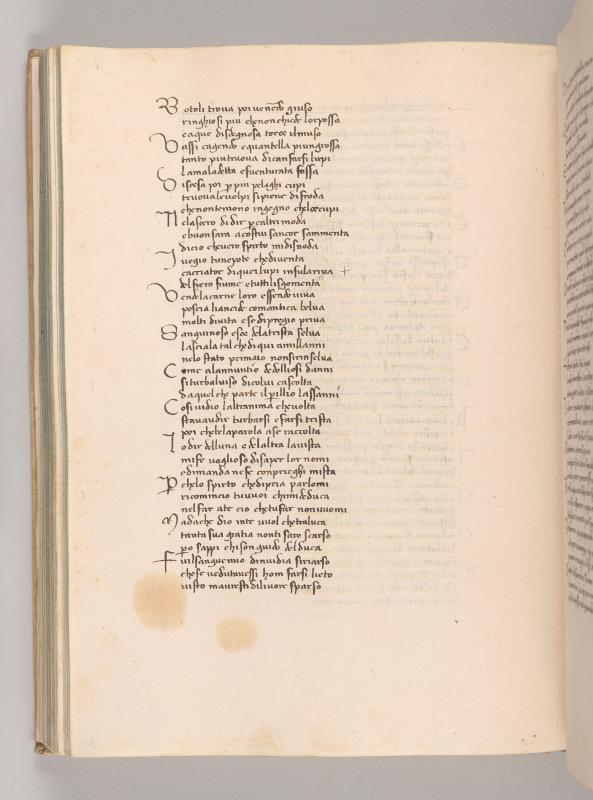 Botoli trova poi venendo giuso
ringhiosi piu che non chiede lor possa
e a que disdegnosa torce il muso
Vassi cagendo e quanta piu ngrossa
tanto piu truova di can farsi lupi
la maladetta e sventurata fossa
Discesa poi per piu pelaghi cupi
truova le volpi si piene di froda
che non temono ingegno che le occupi
Ne lascero di dir per caltri moda
e buon sara a costui sancor sammenta
di cio che vero spirto mi disnoda
I vegio tuo nepote che diventa
cacciator di quei lupi in su la ripa
del fiero fiume e tutti li sgomenta
Vende la carne loro essendo viva
poscia li ancide come antica belva
molti di vita e se di pregio priva
Sanguinoso esce de la trista selva
lasciala tal che di qui a mill anni
ne lo stato primaio non si rinselva
Come al annuntio de dolliosi danni
si turba l viso di colui cascolta
da qual che parte il perillio lassanni
Cosi vid io laltranima che volta
stava udir turbarsi e farsi trista
poi chebe la parola a se raccolta
I o dir de lluna e de laltra la vista
mi fe voglioso di saper lor nomi
e dimanda ne fe con prieghi mista
Per che lo spirto che di pria parlomi
ricomincio tu vuoi chi mi deduca
nel far a te cio che tu far non vuomi
Ma da che dio in te vuol che traluca
tanta sua gratia non ti saro scarso
pero sappi chi son guido del duca
Fu il sangue mio dinvidia si riarso
che se veduto avessi hom farsi lieto
visto mavresti di livore sparso